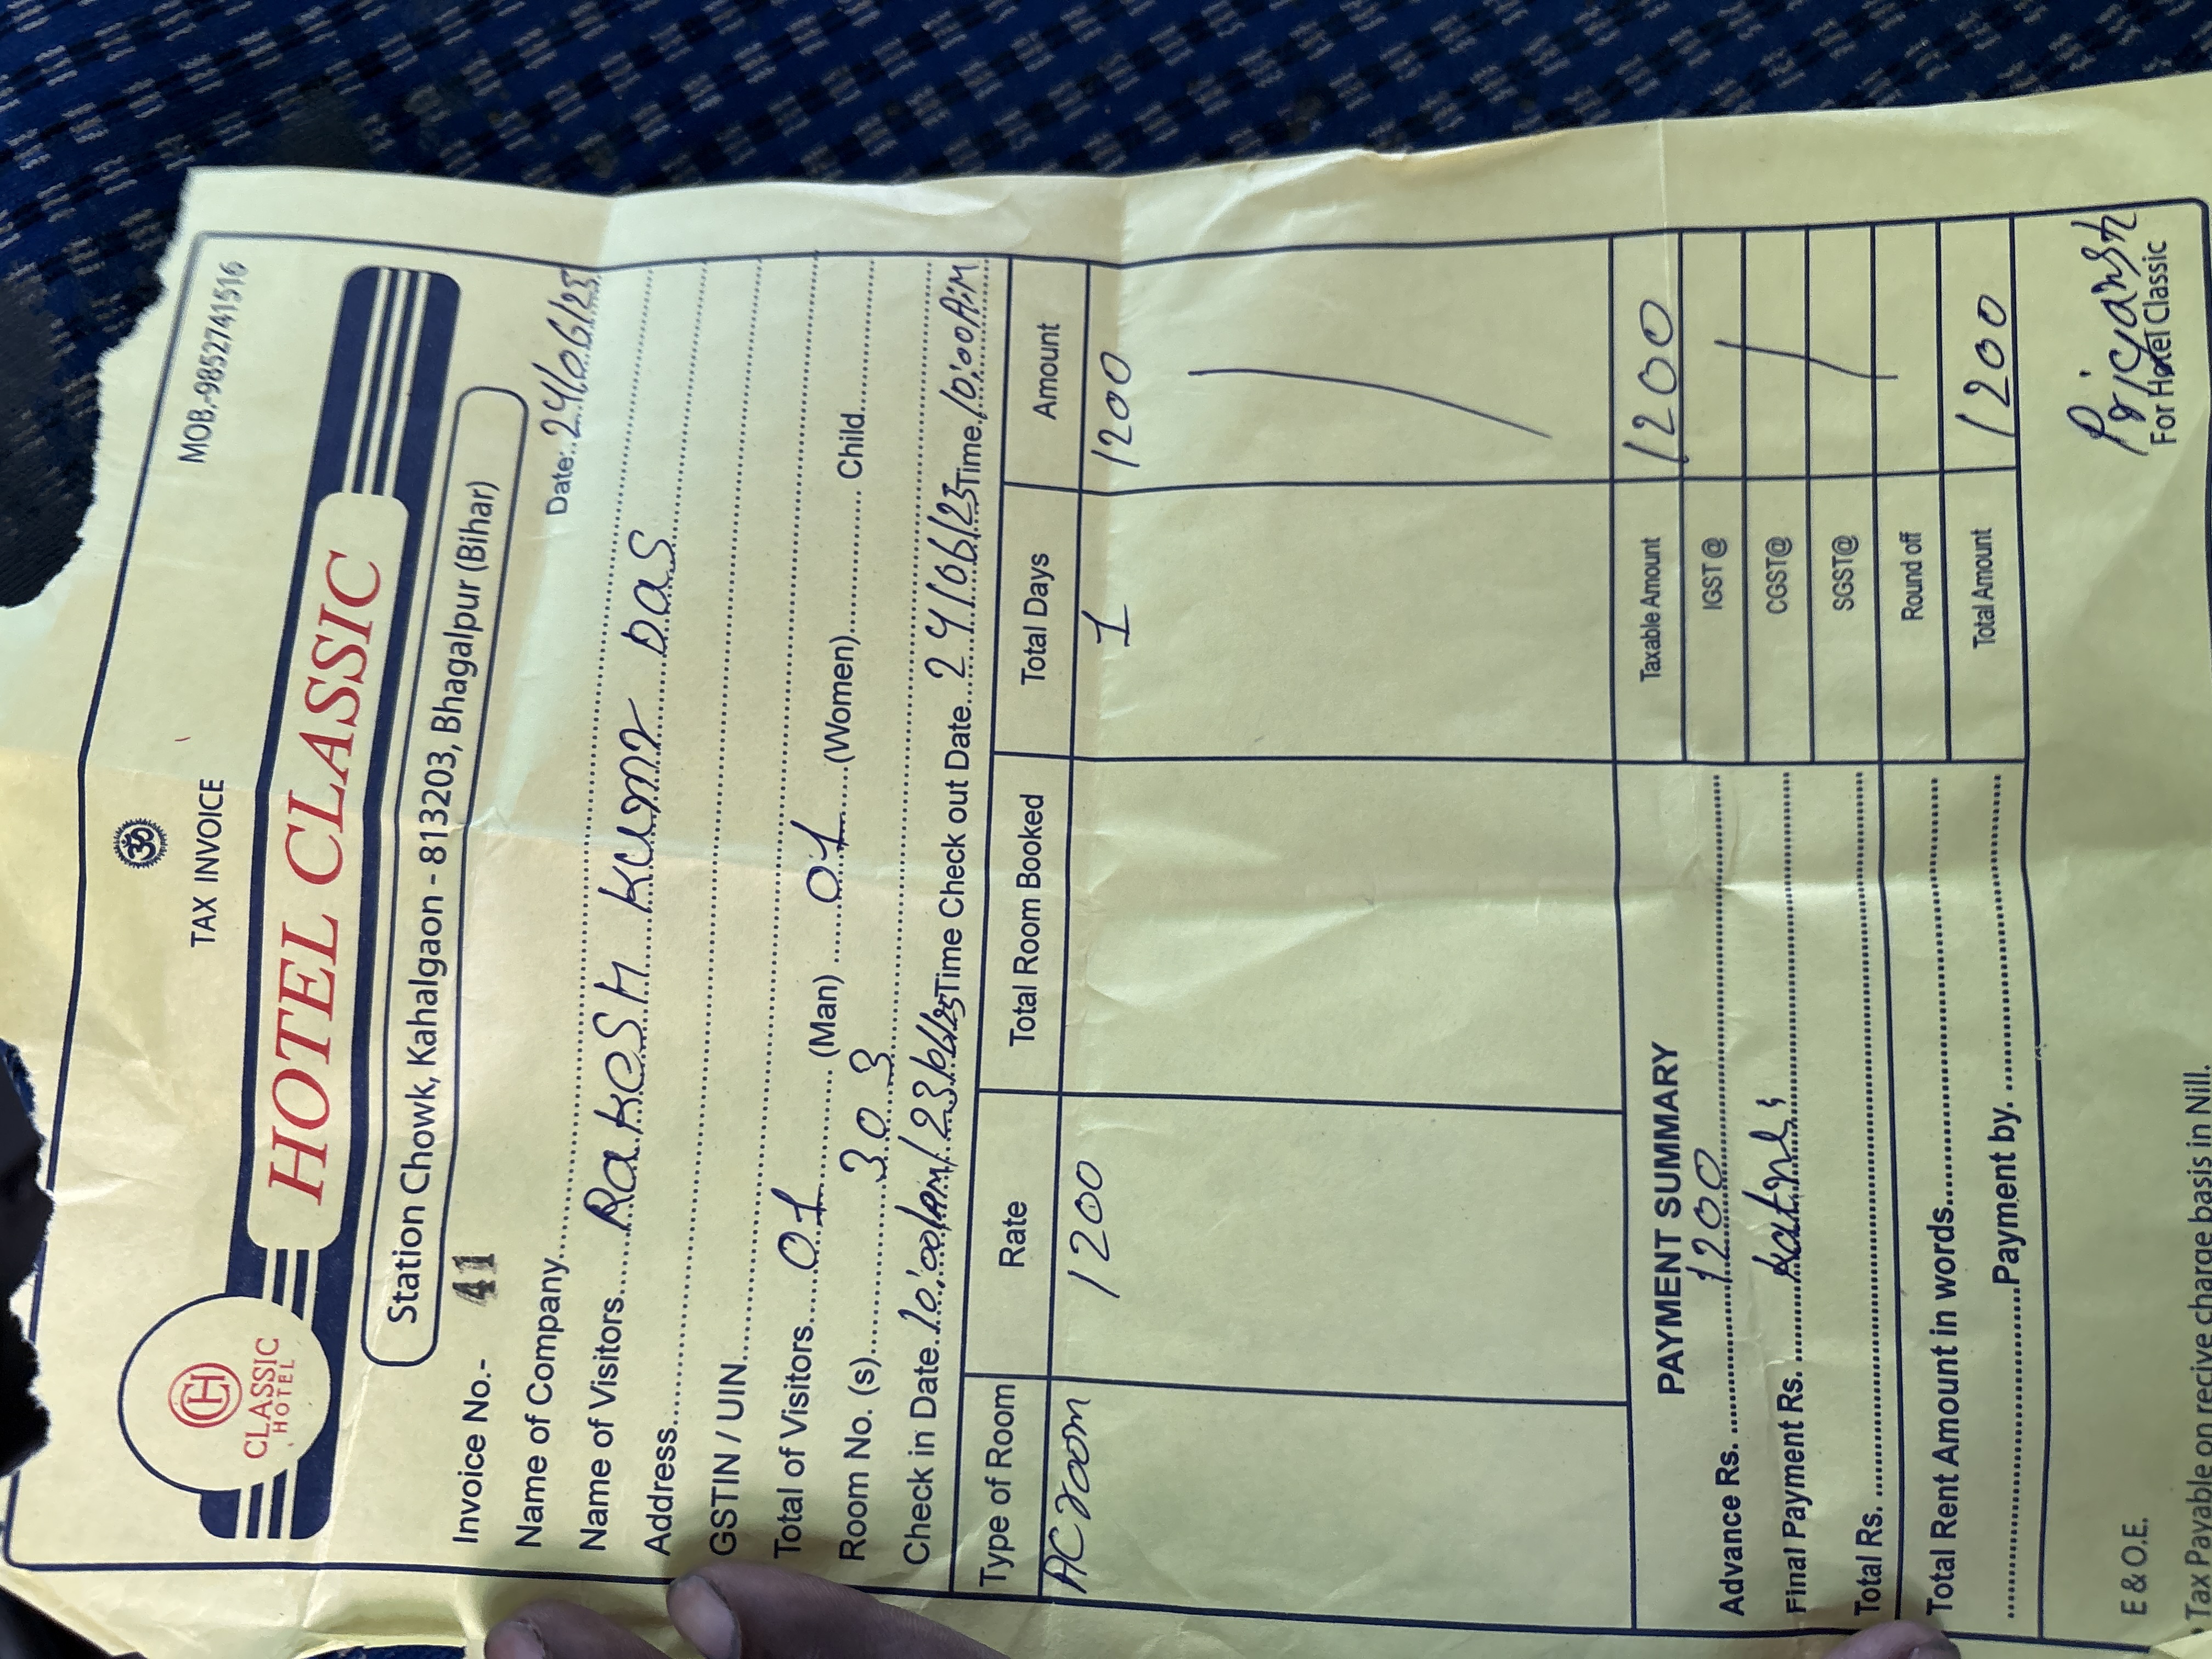 ॐ
MOB.-9852741516
TAX INVOICE
CLASSIC
HOTEL
HOTEL CLASSIC
Station Chowk, Kahalgaon - 813203, Bhagalpur (Bihar)
Invoice No.- 41 Date: 24/06/25
Name of Company
Name of Visitors Rakesh kumr Das
Address
GSTIN / UIN
Total of Visitors 01 (Man) 01 (Women) Child
Room No. (s) 303
Check in Date 10:00AM/23/6/25 Time Check out Date 24/06/25 Time 10:00 A:M
Type of Room Rate Total Room Booked Total Days Amount
AC room 1200 1 1200
PAYMENT SUMMARY Taxable Amount 1200
Advance Rs. 1200 IGST @
Final Payment Rs. CGST@
Total Rs. SGST@
Round off
Total Rent Amount in words Total Amount 1200
Payment by.
Priyansh
E & O.E. For Hotel Classic
* Tax Payable on recive charge basis in Nill.